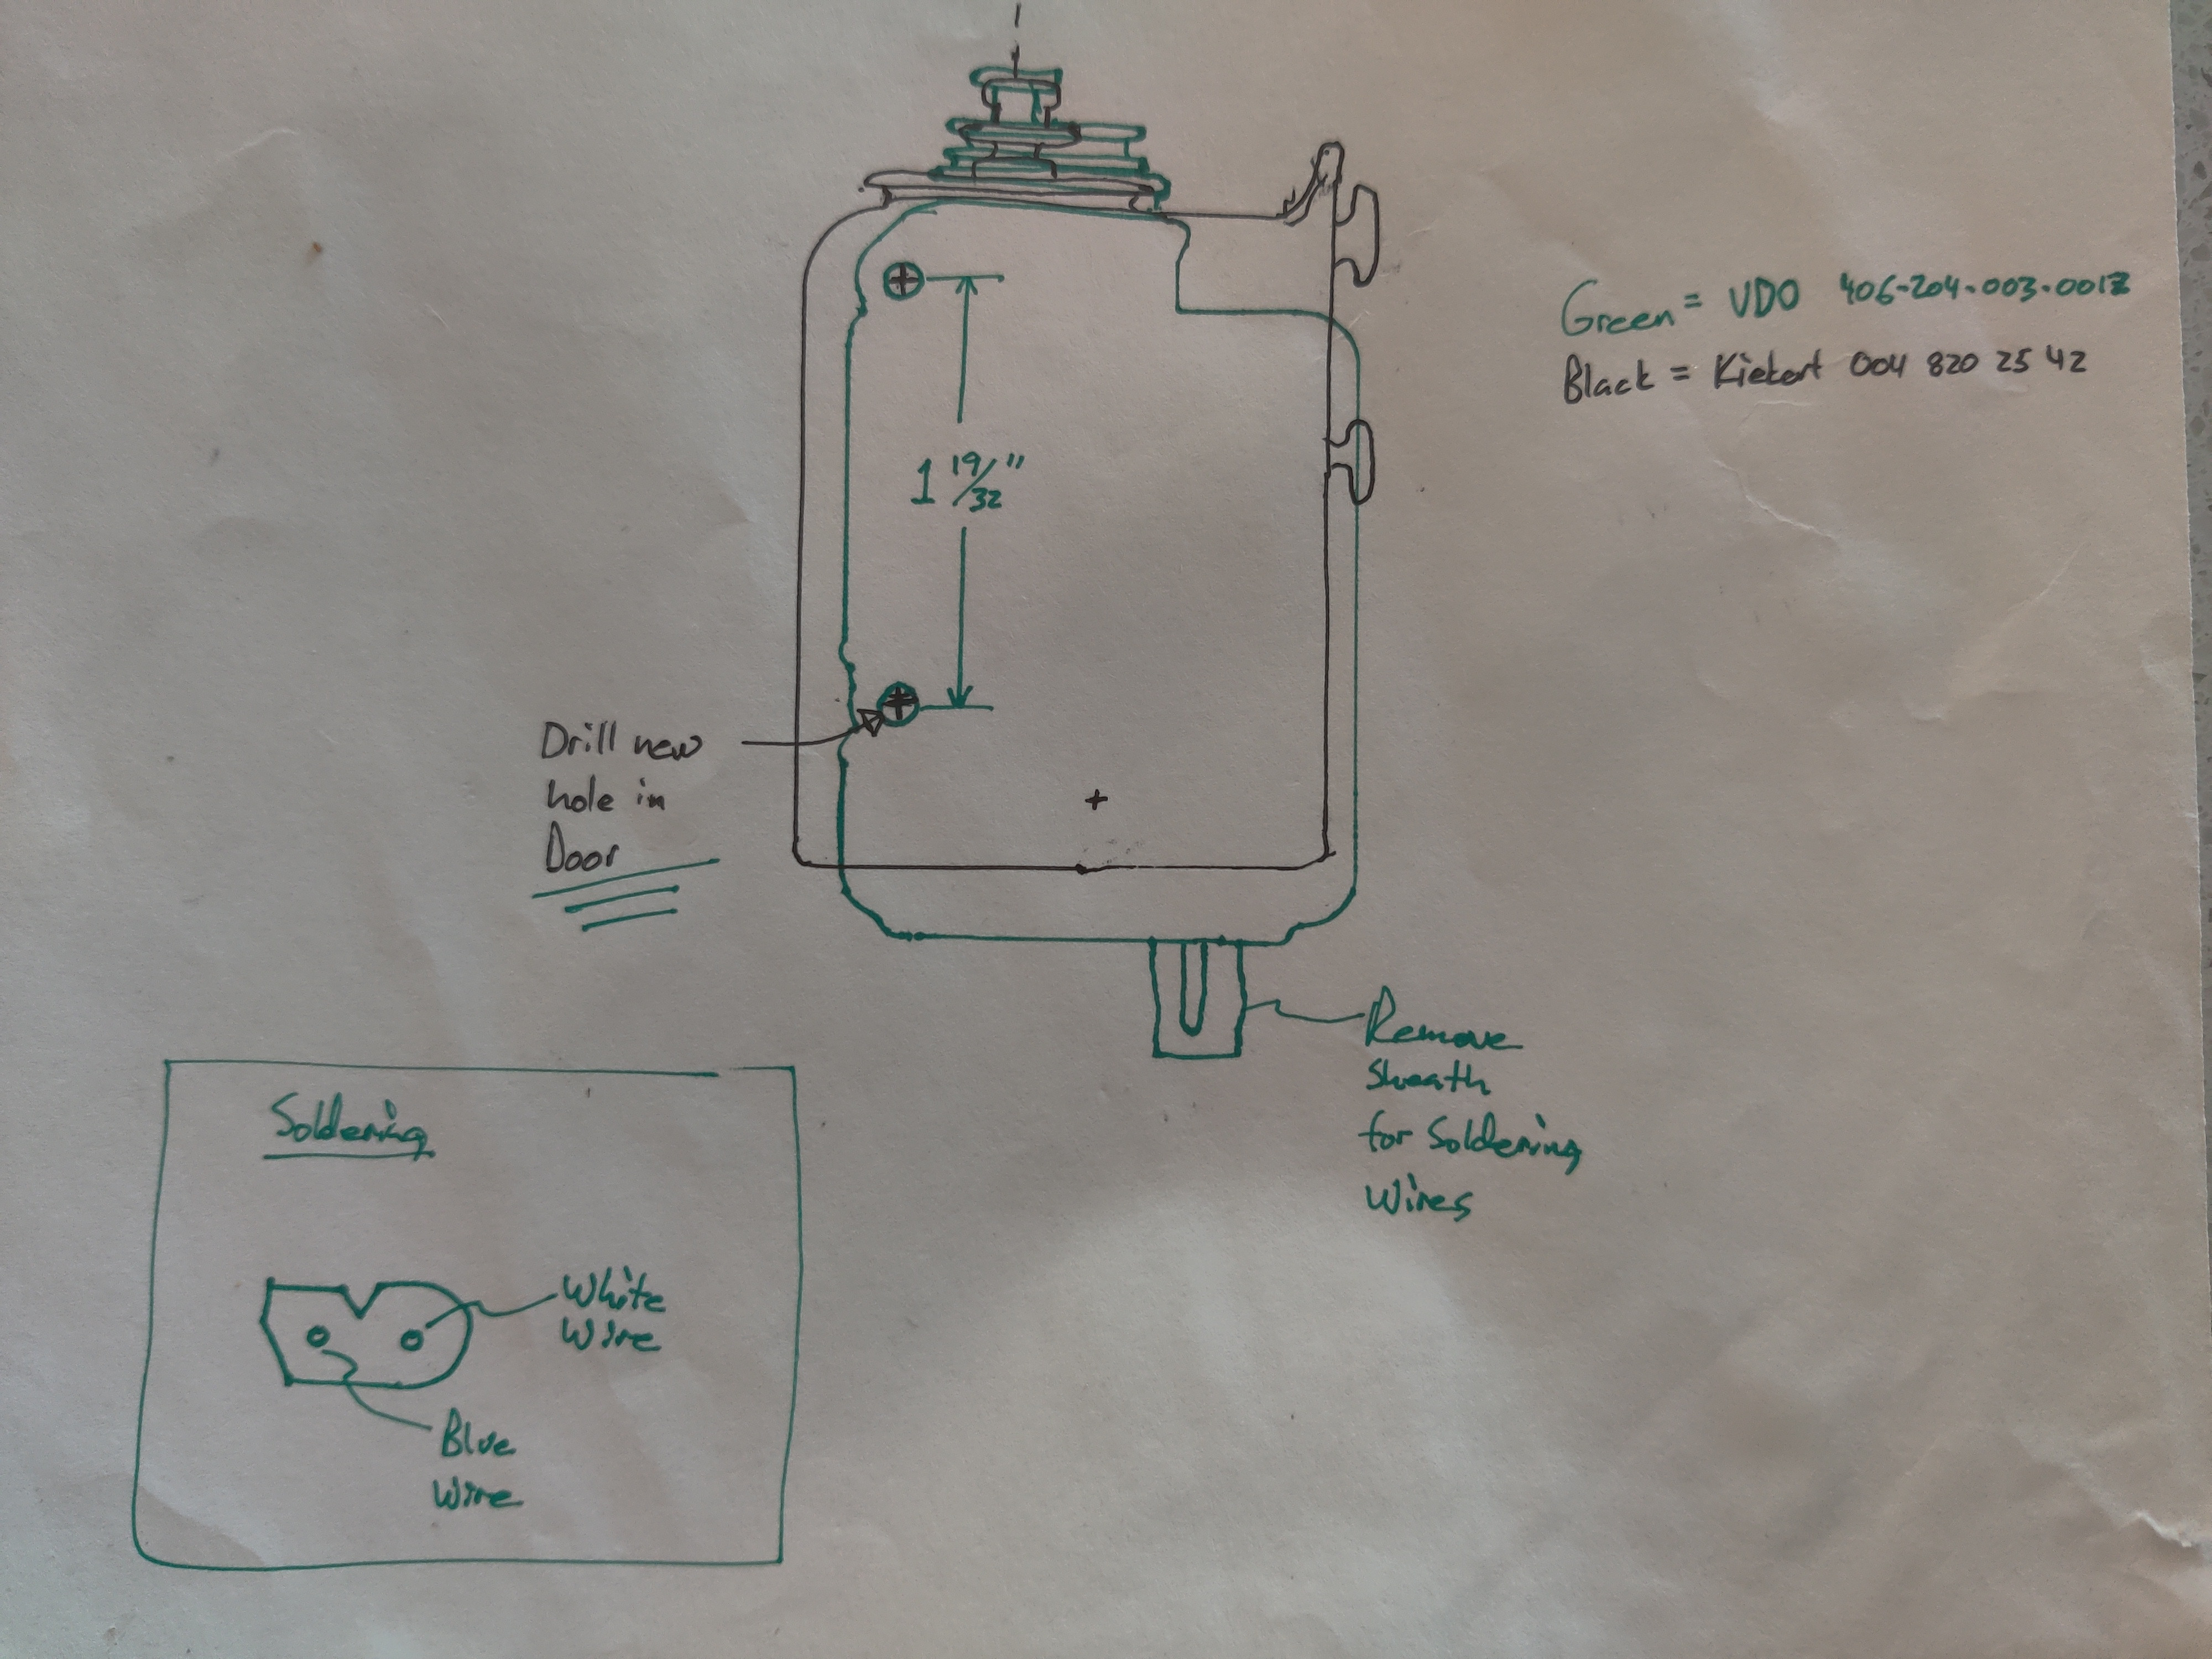 Green = VDO 406-204-003-001Z
Black = Kiekert 004 820 25 42
1 19/32"
Drill new
hole in
Door
Remove
Sheath
for Soldering
Wires
Soldering
White
Wire
Blue
Wire